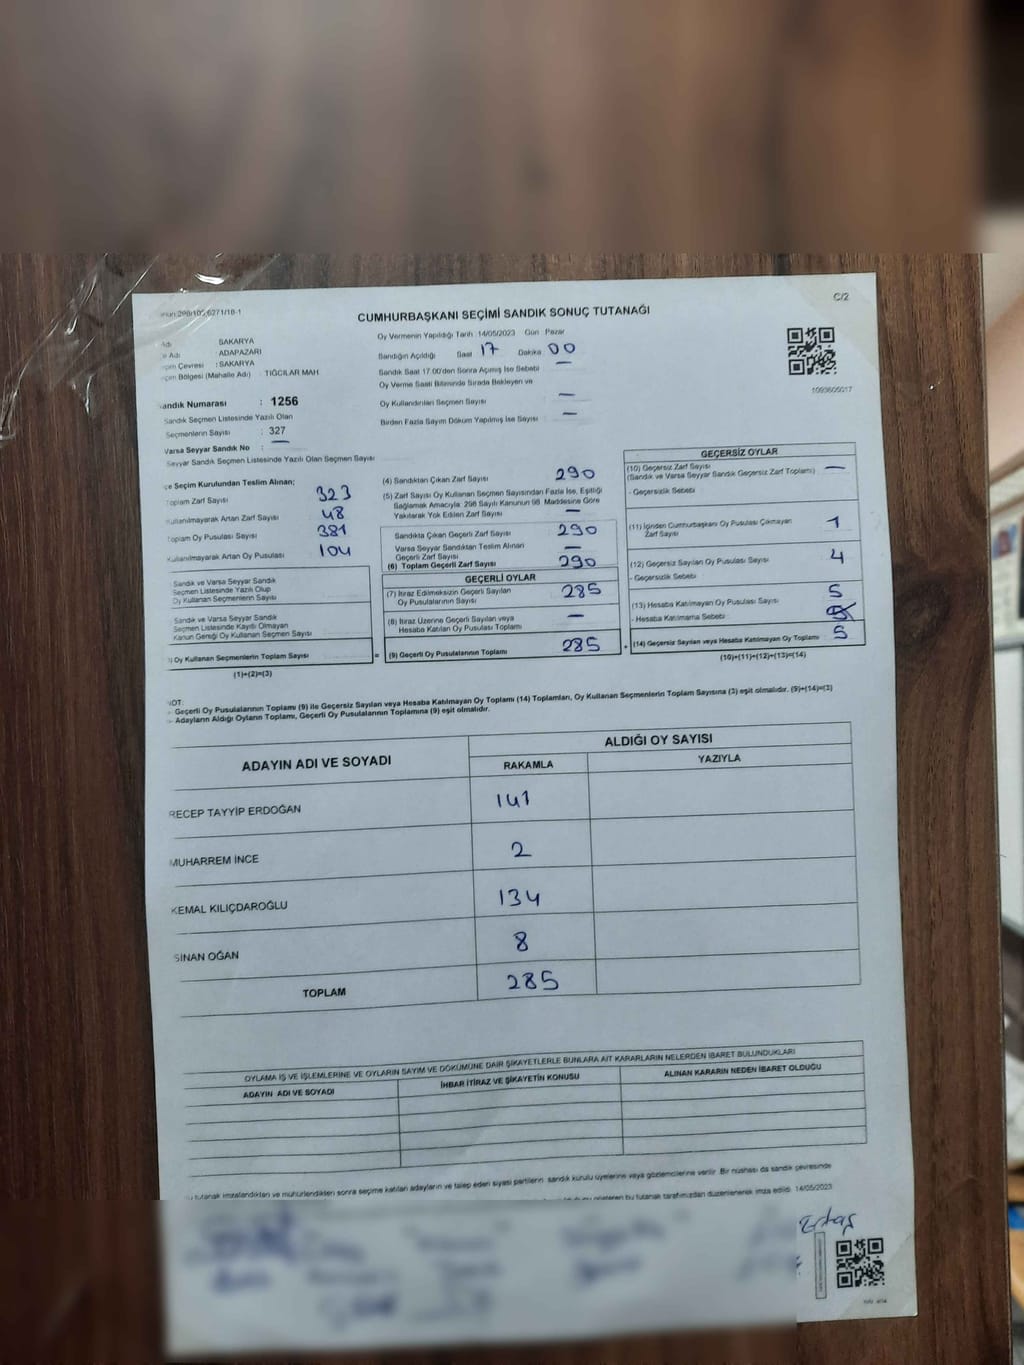 298/102,6271/18-1
C/2
CUMHURBAŞKANI SEÇİMİ SANDIK SONUÇ TUTANAĞI
Adı SAKARYA
Adı : ADAPAZARI
Çevresi : SAKARYA
Bölgesi (Mahalle Adı) : TIĞCILAR MAH
Sandık Numarası : 1256
Sandık Seçmen Listesinde Yazılı Olan
Seçmenlerin Sayısı : 327
Varsa Seyyar Sandık No : —
Seyyar Sandık Seçmen Listesinde Yazılı Olan Seçmen Sayısı
Oy Vermenin Yapıldığı Tarih :14/05/2023 Gün : Pazar
Sandığın Açıldığı Saat : 17 Dakika : 00
Sandık Saat 17.00'den Sonra Açılmış İse Sebebi : —
Oy Verme Saati Bitiminde Sırada Bekleyen ve
Oy Kullandırılan Seçmen Sayısı : —
Birden Fazla Sayım Döküm Yapılmış İse Sayısı : —
1093605017
Seçim Kurulundan Teslim Alınan;
Toplam Zarf Sayısı 323
Kullanılmayarak Artan Zarf Sayısı 48
Toplam Oy Pusulası Sayısı 381
Kullanılmayarak Artan Oy Pusulası 104
Sandık ve Varsa Seyyar Sandık
Seçmen Listesinde Yazılı Olup
Oy Kullanan Seçmenlerin Sayısı
Sandık ve Varsa Seyyar Sandık
Seçmen Listesinde Kayıtlı Olmayan
Kanun Gereği Oy Kullanan Seçmen Sayısı
Oy Kullanan Seçmenlerin Toplam Sayısı =
(1)+(2)=(3)
(4) Sandıktan Çıkan Zarf Sayısı 290
(5) Zarf Sayısı Oy Kullanan Seçmen Sayısından Fazla İse, Eşitliği
Sağlamak Amacıyla; 298 Sayılı Kanunun 98. Maddesine Göre
Yakılarak Yok Edilen Zarf Sayısı —
Sandıkta Çıkan Geçerli Zarf Sayısı 290
Varsa Seyyar Sandıktan Teslim Alınan
Geçerli Zarf Sayısı —
(6) Toplam Geçerli Zarf Sayısı 290
GEÇERLİ OYLAR
(7) İtiraz Edilmeksizin Geçerli Sayılan
Oy Pusulalarının Sayısı 285
(8) İtiraz Üzerine Geçerli Sayılan veya
Hesaba Katılan Oy Pusulası Toplamı —
(9) Geçerli Oy Pusulalarının Toplamı 285 +
GEÇERSİZ OYLAR
(10) Geçersiz Zarf Sayısı —
(Sandık ve Varsa Seyyar Sandık Geçersiz Zarf Toplamı)
- Geçersizlik Sebebi
(11) İçinden Cumhurbaşkanı Oy Pusulası Çıkmayan
Zarf Sayısı 1
(12) Geçersiz Sayılan Oy Pusulası Sayısı 4
- Geçersizlik Sebebi
(13) Hesaba Katılmayan Oy Pusulası Sayısı 5
- Hesaba Katılmama Sebebi
(14) Geçersiz Sayılan veya Hesaba Katılmayan Oy Toplamı 5
(10)+(11)+(12)+(13)=(14)
NOT:
- Geçerli Oy Pusulalarının Toplamı (9) ile Geçersiz Sayılan veya Hesaba Katılmayan Oy Toplamı (14) Toplamları, Oy Kullanan Seçmenlerin Toplam Sayısına (3) eşit olmalıdır. (9)+(14)=(3)
- Adayların Aldığı Oyların Toplamı, Geçerli Oy Pusulalarının Toplamına (9) eşit olmalıdır.
ADAYIN ADI VE SOYADI
ALDIĞI OY SAYISI
RAKAMLA YAZIYLA
RECEP TAYYİP ERDOĞAN 141
MUHARREM İNCE 2
KEMAL KILIÇDAROĞLU 134
SİNAN OĞAN 8
TOPLAM 285
OYLAMA İŞ VE İŞLEMLERİNE VE OYLARIN SAYIM VE DÖKÜMÜNE DAİR ŞİKAYETLERLE BUNLARA AİT KARARLARIN NELERDEN İBARET BULUNDUKLARI
ADAYIN ADI VE SOYADI İHBAR İTİRAZ VE ŞİKAYETİN KONUSU ALINAN KARARIN NEDEN İBARET OLDUĞU
tutanak imzalandıktan ve mühürlendikten sonra seçime katılan adayların ve talep eden siyasi partilerin sandık kurulu üyelerine veya gözlemcilerine verilir. Bir nüshası da sandık çevresinde
gösteren bu tutanak tarafımızdan düzenlenerek imza edildi. 14/05/2023
Ertaş